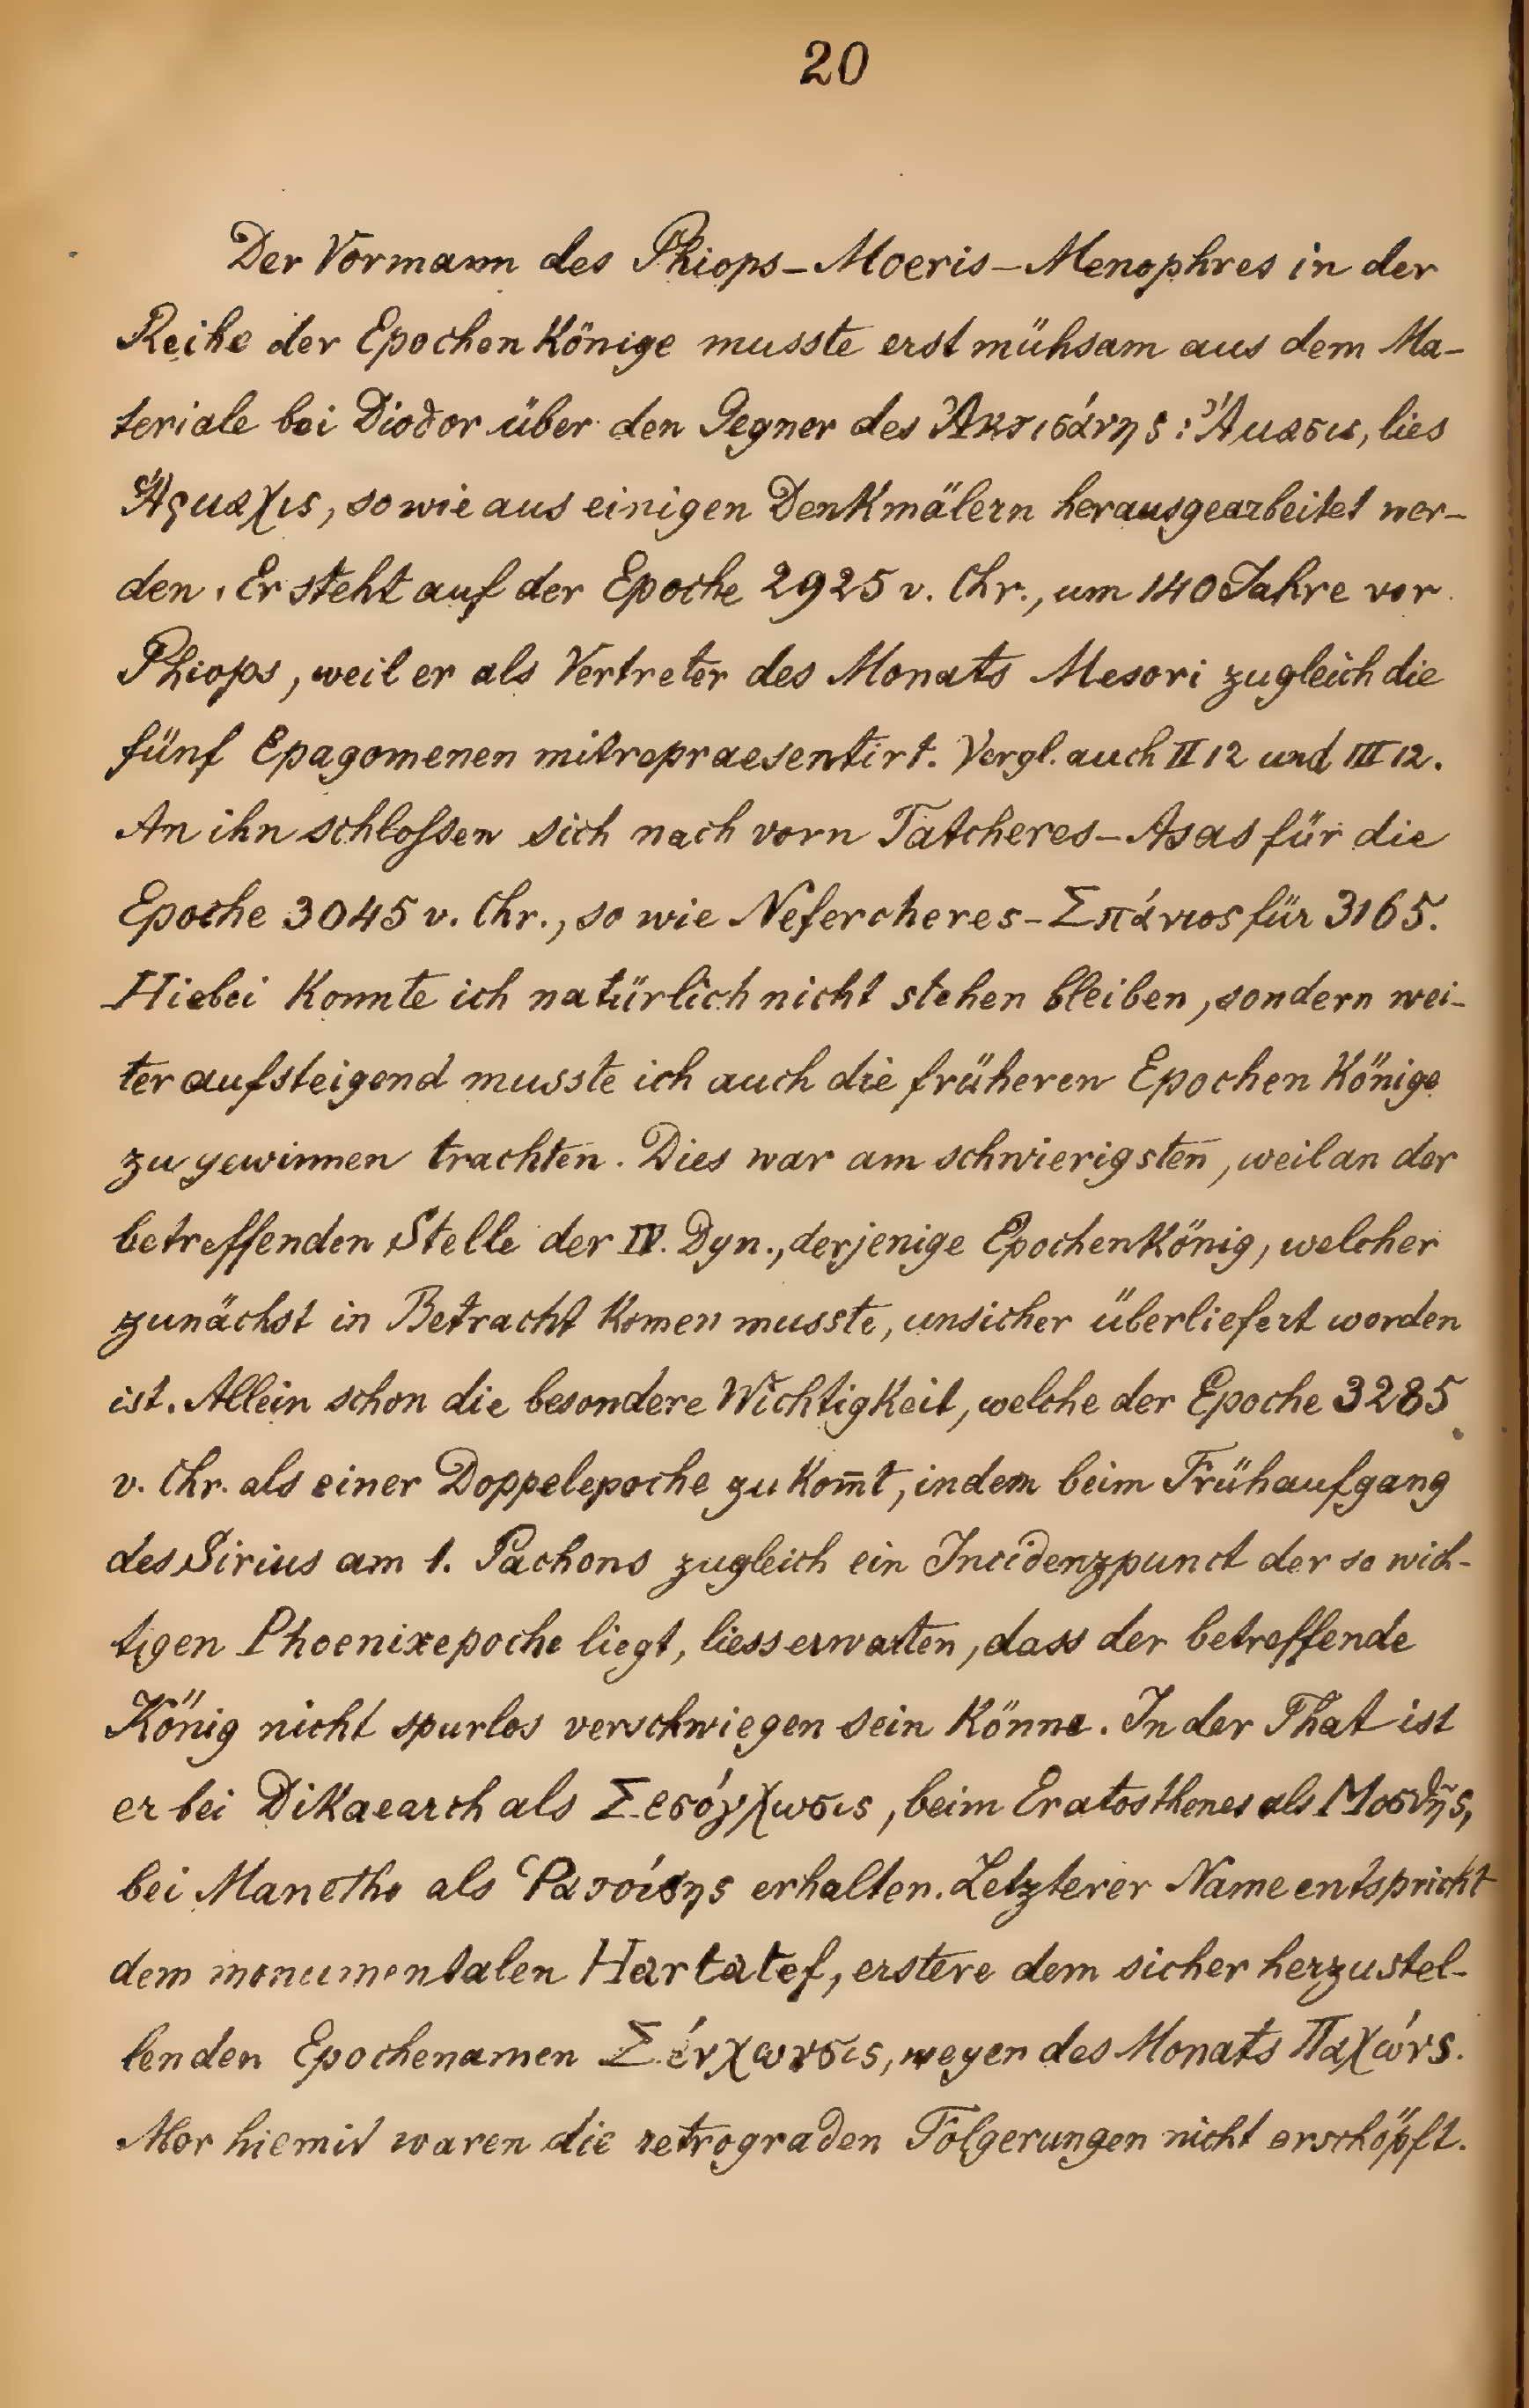 20
Der Vormann des Phiops-Moeris-Menophres in der
Reihe der Epochenkönige musste erst mühsam aus dem Ma-
teriale bei Diodor über den Gegner des Ἀκτισάνης: Ἄμασις, lies
Ἅρμαχις, sowie aus einigen Denkmälern herausgearbeitet wer-
den. Er steht auf der Epoche 2925 v. Chr., um 140 Jahre vor
Phiops, weil er als Vertreter des Monats Mesori zugleich die
fünf Epagomenen mitrepraesentirt. Vergl. auch II 12 und III 12.
An ihn schlossen sich nach vorn Tatcheres-Asas für die
Epoche 3045 v. Chr., so wie Nefercheres-Σπάνιος für 3165.
Hiebei konnte ich natürlich nicht stehen bleiben, sondern wei-
ter aufsteigend musste ich auch die früheren Epochenkönige
zu gewinnen trachten. Dies war am schwierigsten, weil an der
betreffenden Stelle der IV. Dyn., derjenige Epochenkönig, welcher
zunächst in Betracht komen musste, unsicher überliefert worden
ist. Allein schon die besondere Wichtigkeit, welche der Epoche 3285
v. Chr. als einer Doppelepoche zukom̄t, indem beim Frühaufgang
des Sirius am 1. Pachons zugleich ein Incidenzpunct der so wich-
tigen Phoenixepoche liegt, liess erwarten, dass der betreffende
König nicht spurlos verschwiegen sein könne. In der That ist
er bei Dikaearch als Σεσόγχωσις, beim Eratosthenes als Μοσθῆς,
bei Manetho als Ῥατοίσης erhalten. Letzterer Name entspricht
dem monumentalen Hartatef, erstere dem sicher herzustel-
lenden Epochenamen Σένχωνσις, wegen des Monats Παχώνς.
Aber hiemit waren die retrograden Folgerungen nicht erschöpft.